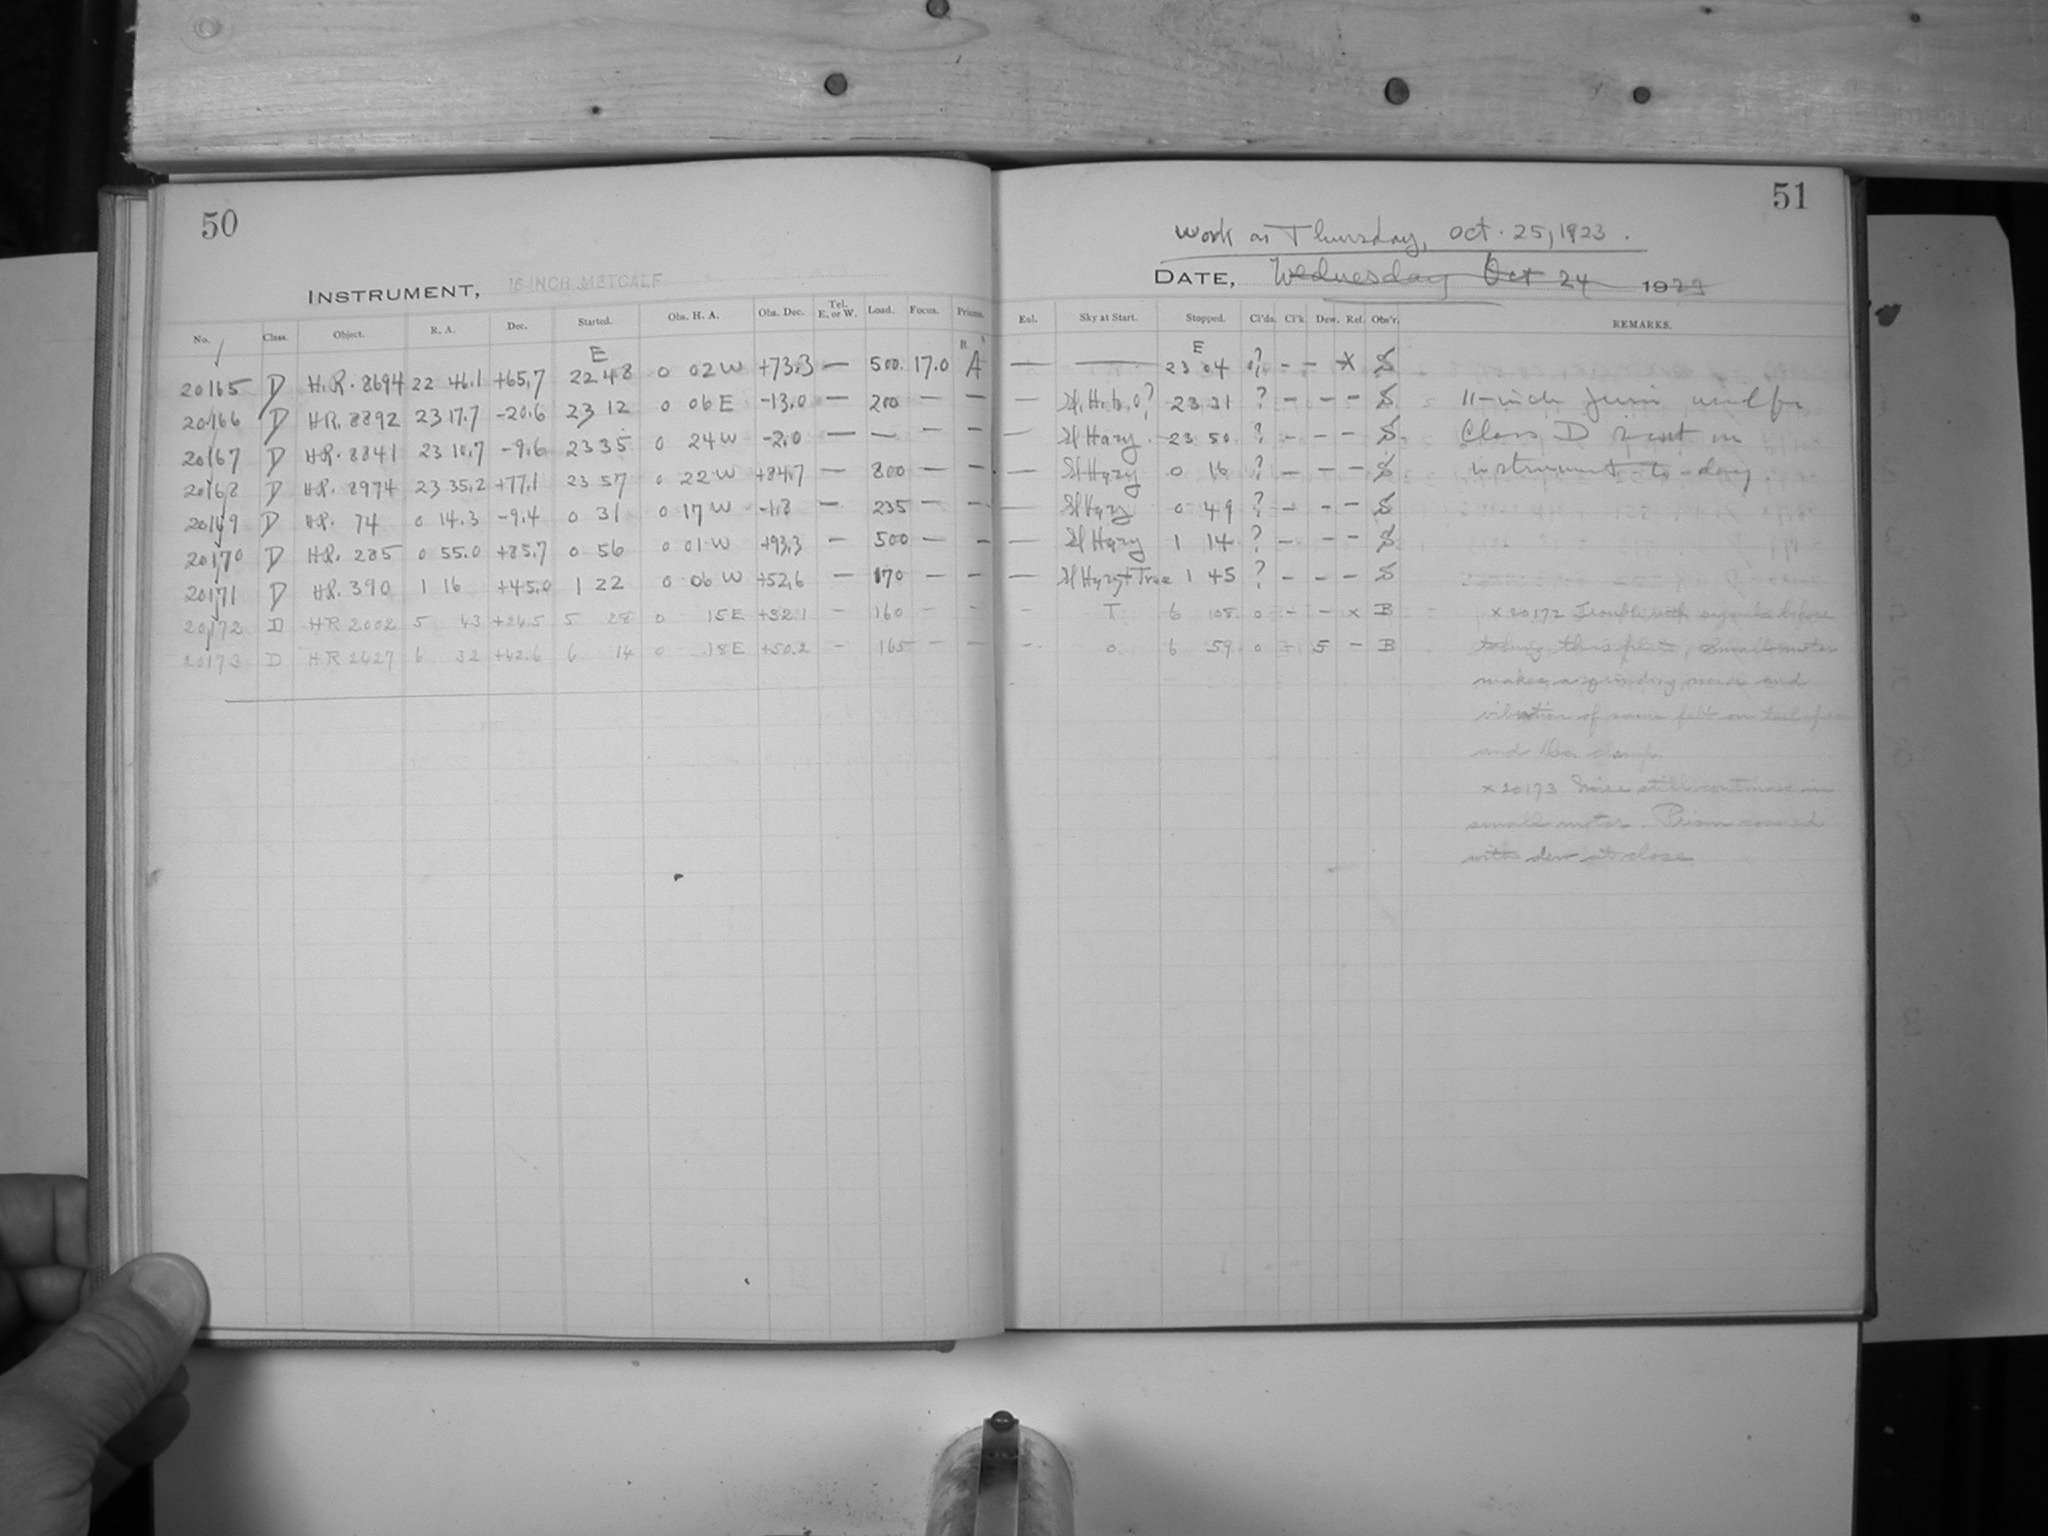 50
INSTRUMENT, 16-INCH METCALF
No. Class. Object. R. A. Dec. Started. Obs. H. A. Obs. Dec. Tel. E. or W. Load. Focus. Prisms.
E
20165 D H.R. 8694 22 46.1 +65.7 22 48 0 02 W +73.3 — 500. 17.0 A
20166 D HR. 8892 23 17.7 -20.6 23 12 0 06 E -13.0 — 200 — —
20167 D HR. 8841 23 10.7 -9.6 23 35 0 24 W -2.0 — — — —
20168 D HR. 8974 23 35.2 +77.1 23 57 0 22 W +84.7 — 800 — —
20169 D HR. 74 0 14.3 -9.4 0 31 0 17 W -1.8 — 235 — —
20170 D HR. 285 0 55.0 +85.7 0 56 0 01 W +93.3 — 500 — —
20171 D HR. 390 1 16 +45.0 1 22 0 06 W +52.6 — 170 — —
20172 D HR 2002 5 43 +24.5 5 28 0 15 E +32.1 - 160 - -
20173 D HR 2427 6 32 +42.6 6 14 0 18 E +50.2 - 165 - -
51
Work on Thursday, Oct. 25, 1923.
DATE, Wednesday Oct 24 1923
Enl. Sky at Start. Stopped. Cl'ds. Cl'k. Dew. Ref. Obs'r. REMARKS.
E
— — 23 04 ? - - X S
— 23 31 ? - - - S 11-inch used for
— Sl Hazy 23 50 ? - - - S Class D in
— Sl Hazy 0 16 ? - - - S instrument to-day
— Sl Hazy 0 49 ? - - - S
— Sl Hazy 1 14 ? - - - S
— Sl Hazy 1 45 ? - - - S
- T 6 08 0 - - x B x 20172 Trouble with before
- 0 6 59 0 - 5 - B taking this plate, Small motor
makes a grinding noise and
vibration of same felt on
and Dec. clamp.
x 20173 Noise still continues in
small motor. Prism covered
with dew at close